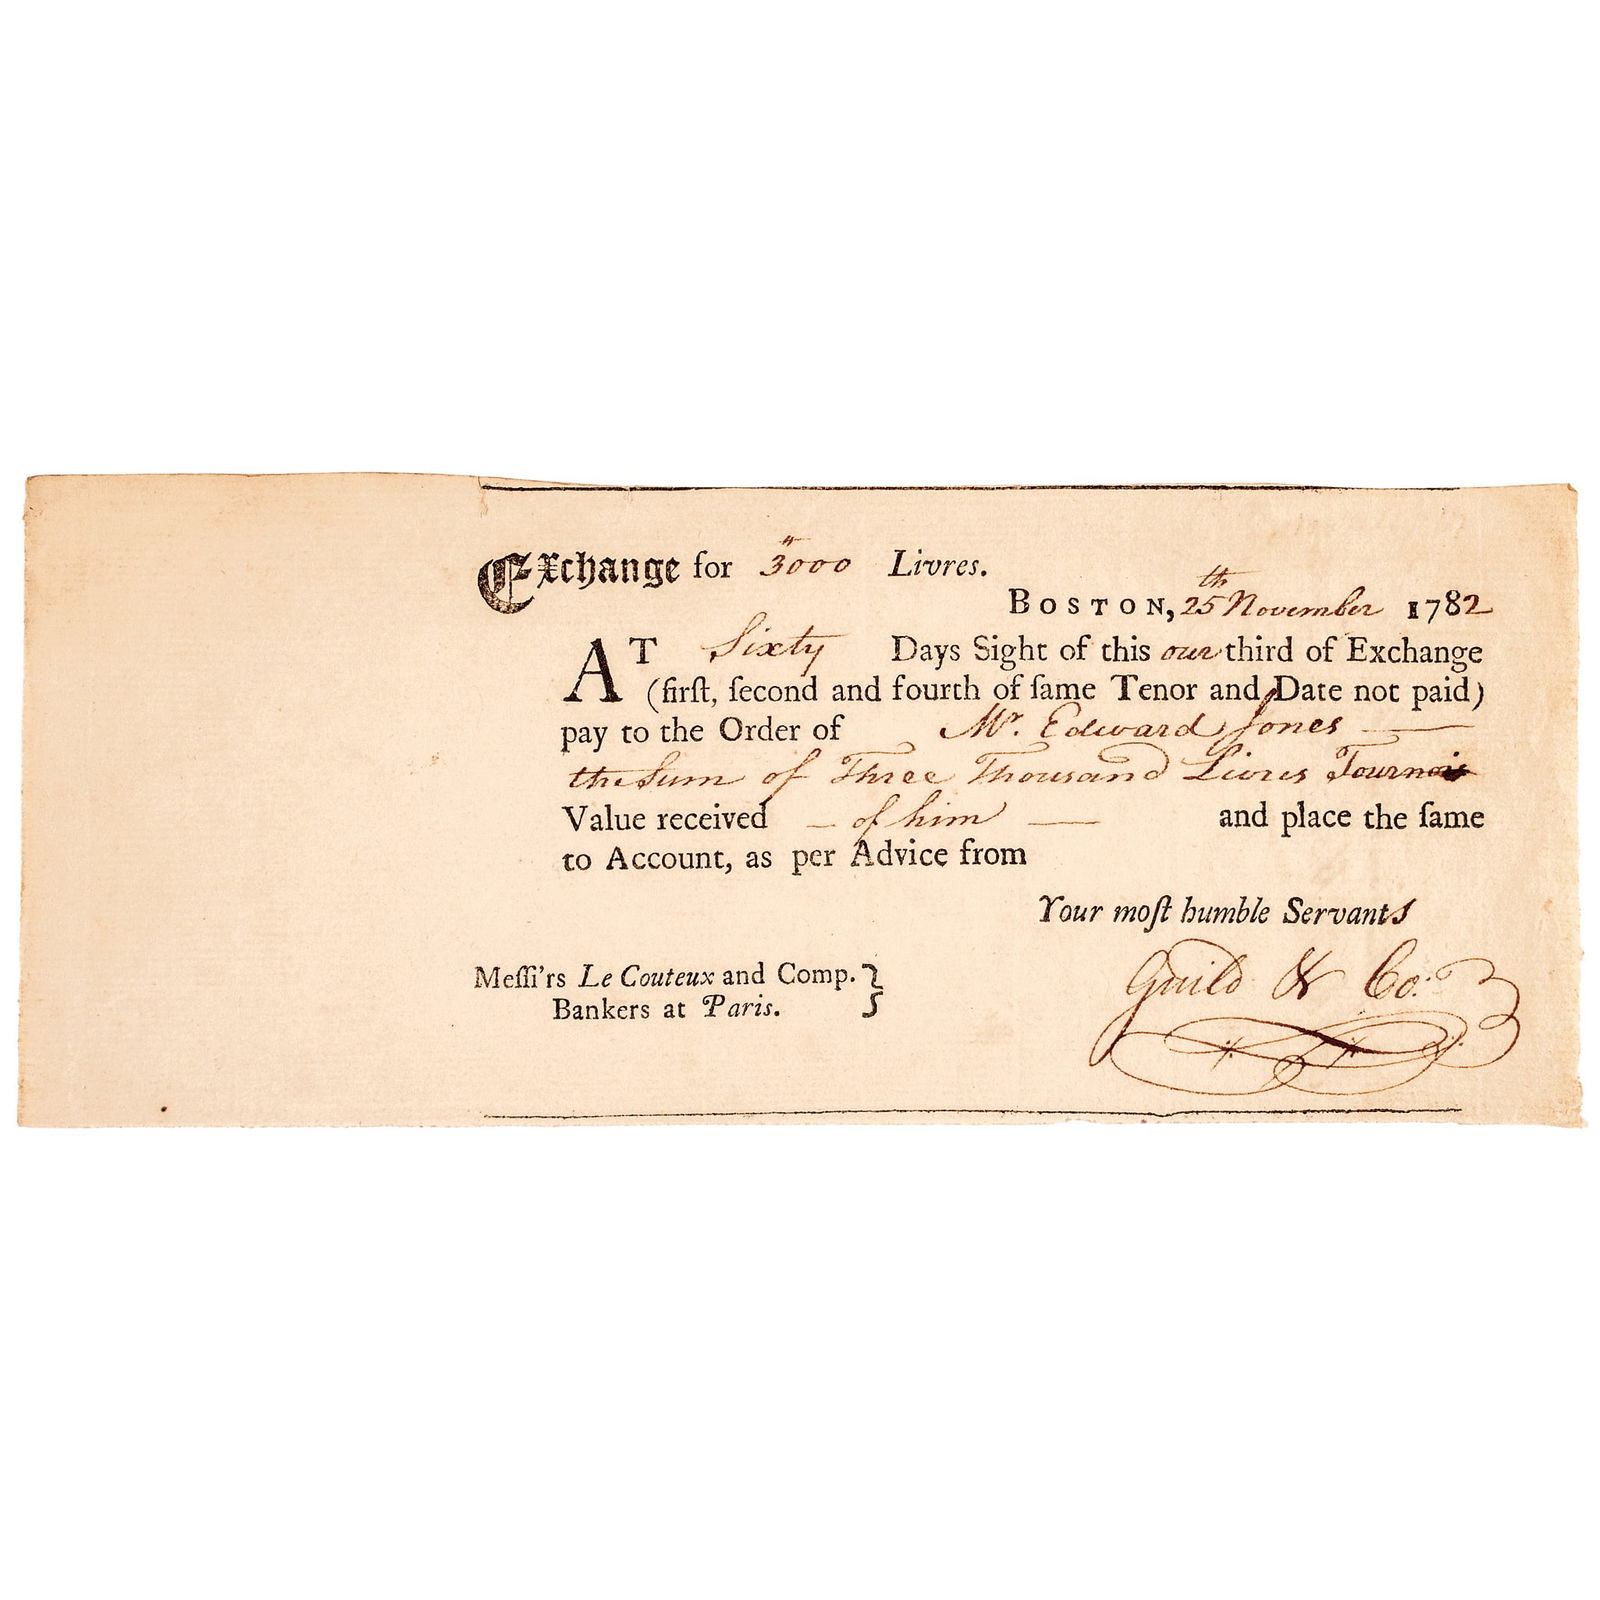 Exchange for 3000 Livres.
BOSTON, 25th November 1782
AT Sixty Days Sight of this our third of Exchange
(firſt, ſecond and fourth of ſame Tenor and Date not paid)
pay to the Order of Mr. Edward Jones —
the Sum of Three Thousand Livres Tournois
Value received — of him — and place the ſame
to Account, as per Advice from
Your moſt humble Servants
Guild & Co:
Meſſi'rs Le Couteux and Comp. }
Bankers at Paris.